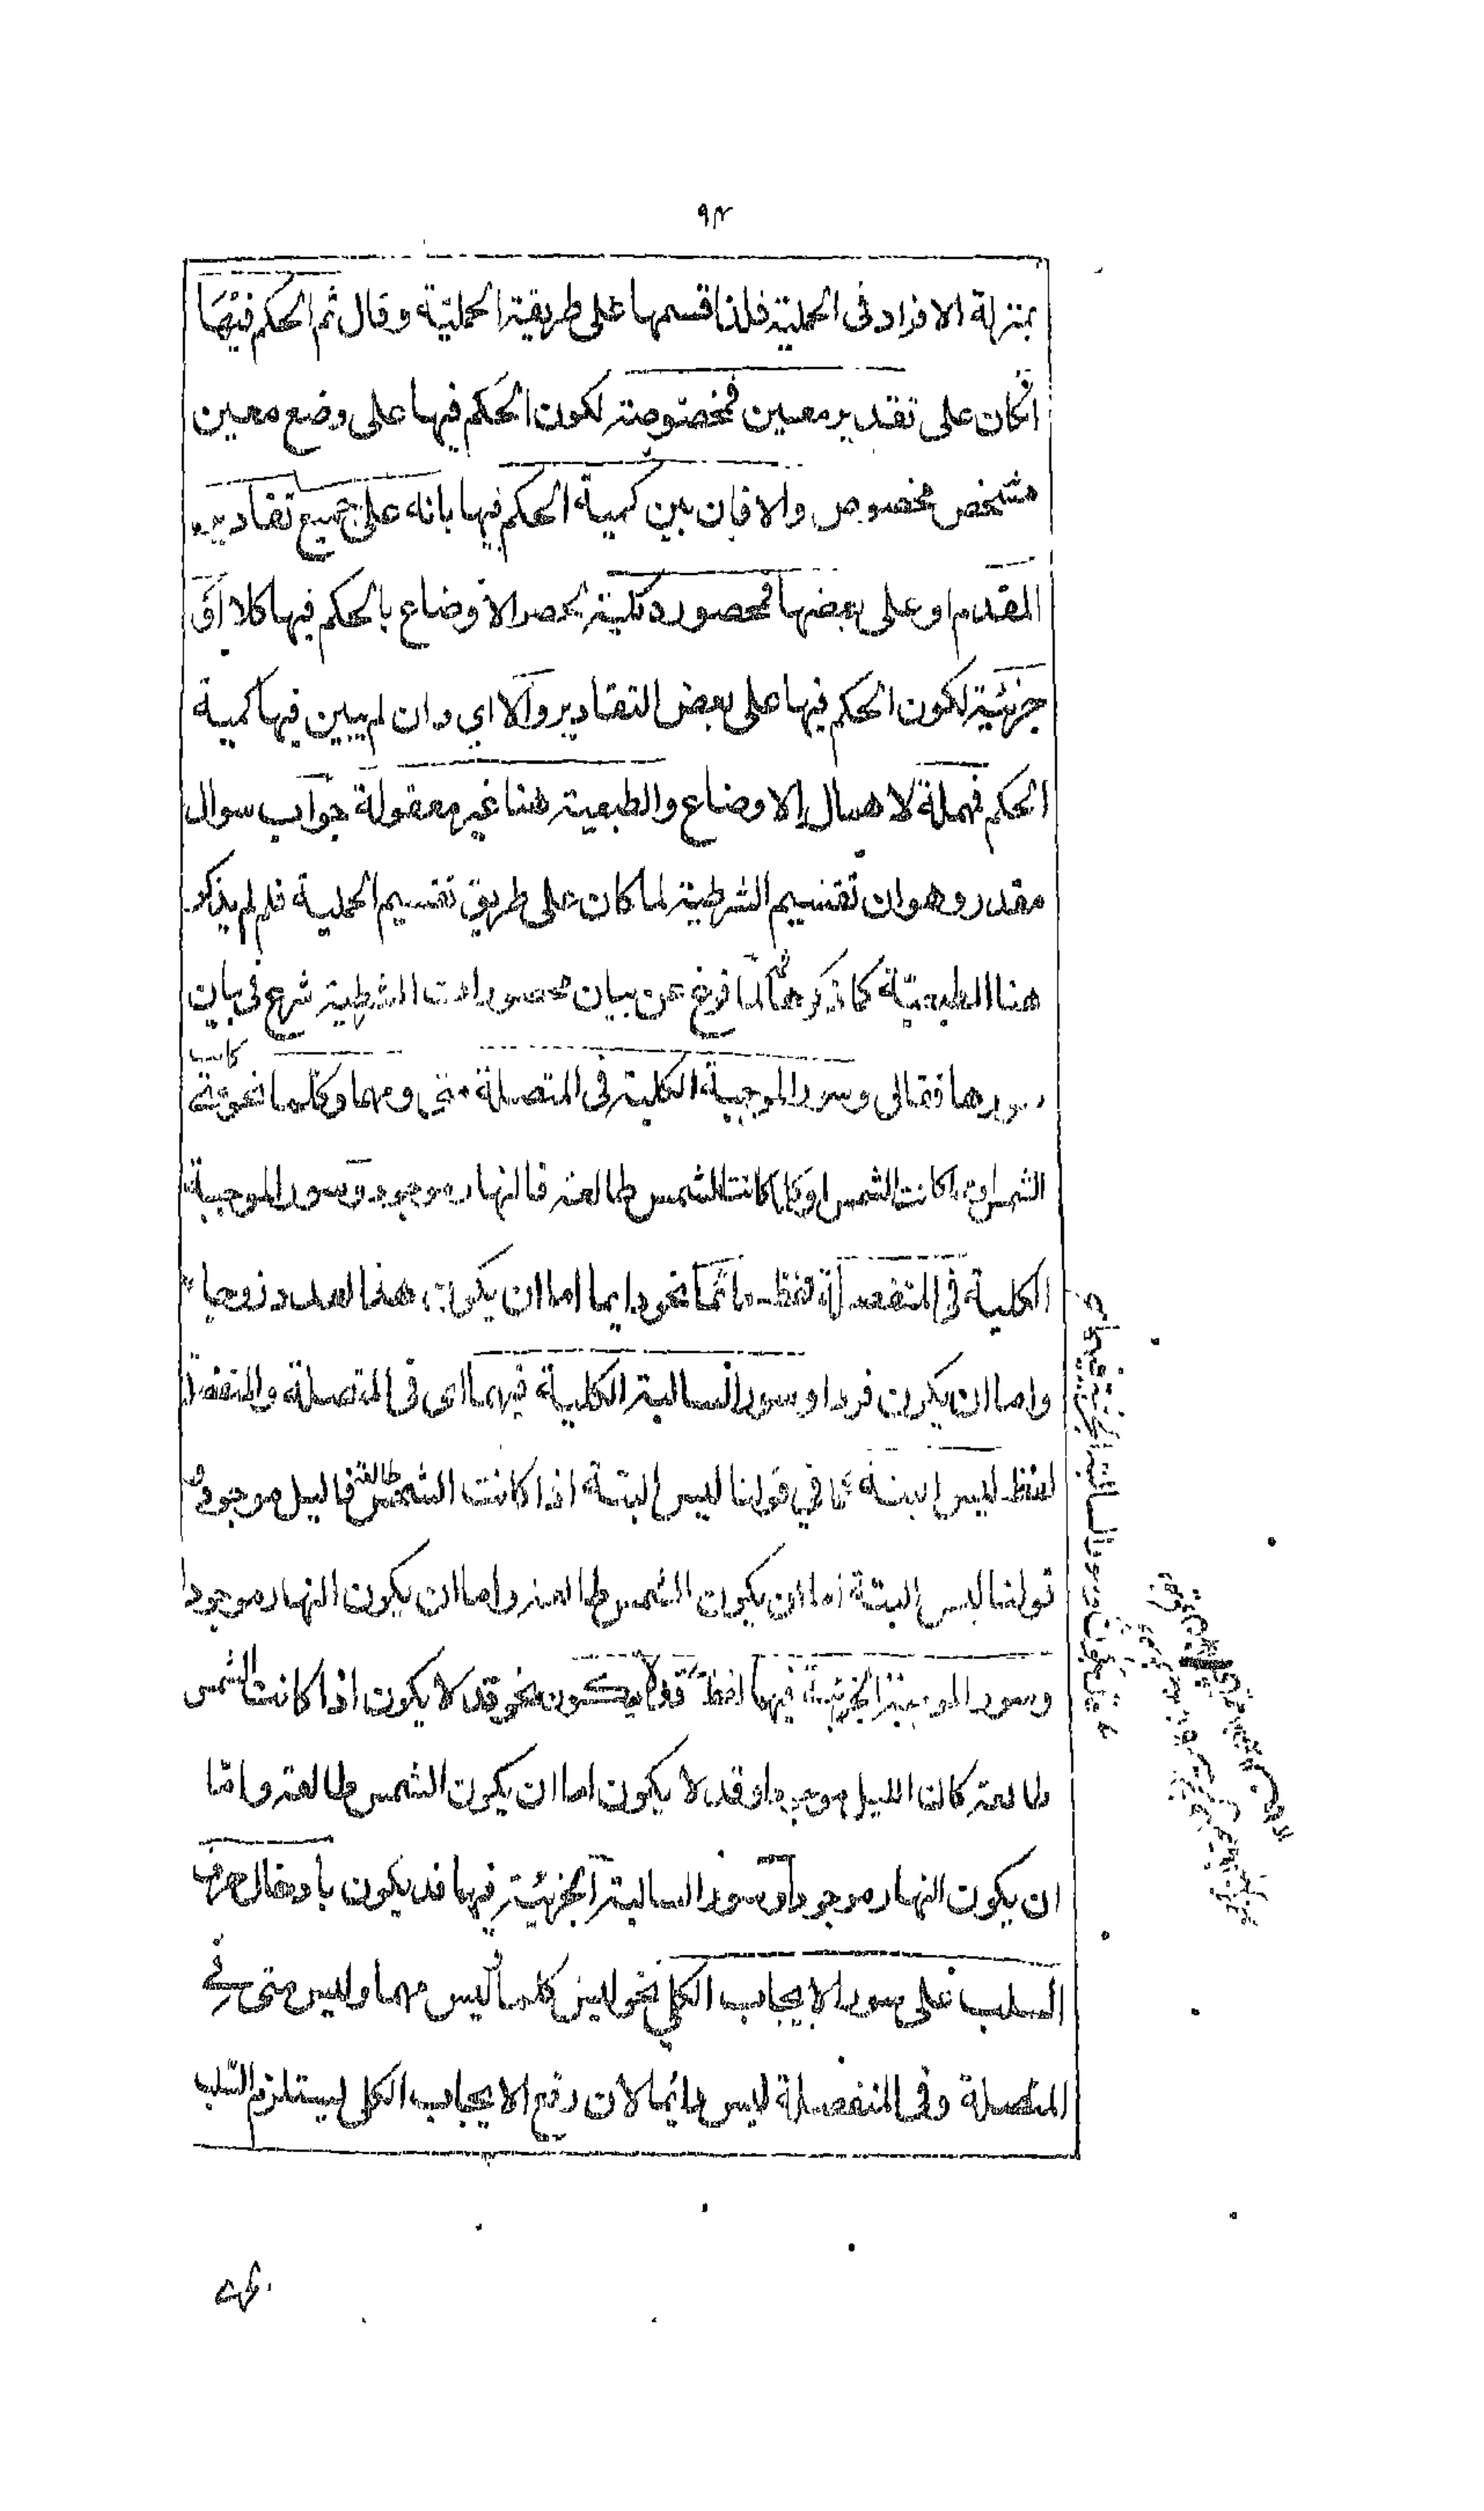 ٩٢
بمنزلة الافراد فى الحملية فلذا قسمها على طريقية الحمليّة وقال ثم الحكم فيها
انكان على تقدير معين فمخصوصة لكون الحكم فيها على وضع معين
مشخص مخصوص والا فان بين كمية الحكم فيها بانه على جميع تقادير
المقدم او على بعضها فمحصورة كلية لحصر الاوضاع بالحكم فيها كلا او
جزئية لكون الحكم فيها على بعض التقادير والا اي وان لم يبين فيها كمية
الحكم فمهملة لاهمال الاوضاع والطبعية هنا غير معقولة جواب سوال
مقدر وهو ان تقسيم الشرطية لما كان على طريق تقسيم الحملية فلم لم يذكر
هنا الطبعيّة كما ذكرها ثم لمّا فرغ عن بيان محصورات الشرطية شرع فى بيان
سورها فقال وسور الموجبة الكلية فى المتصلة متى ومهما وكلما نحو متى
كانت
الشمس او مهما كانت الشمس او كلما كانت الشمس طالعة فالنهار موجود وسور الموجبة
الكلية فى المنفصلة لفظ دائما نحو دايما اما ان يكون هذا العدد زوجا
واما ان يكون فردا وسور السالبة الكلية فيهما اى فى المتصلة والمنفصلة
لفظ ليس البتة كما في قولنا ليس البتة اذا كانت الشمس طالعة فاليل موجود و
قولنا ليس البتة اما ان يكون الشمس طالعة واما ان يكون النهار موجودا
وسور الموجبة الجزئية فيهما لفظ قد لا يكون نحو قد لا يكون اذا كانت الشمس
طالعة كان الليل موجودا وقد لا يكون اما ان يكون الشمس طالعة وامّا
ان يكون النهار موجودا وسور السالبة الجزئية فيهما قد يكون بادخال حرف
السلب على سور الايجاب الكلي نحو ليس كلما ليس مهما وليس متى في
المتصلة وفى المنفصلة ليس دائما لان رفع الايجاب الكلى يستلزم السّلب